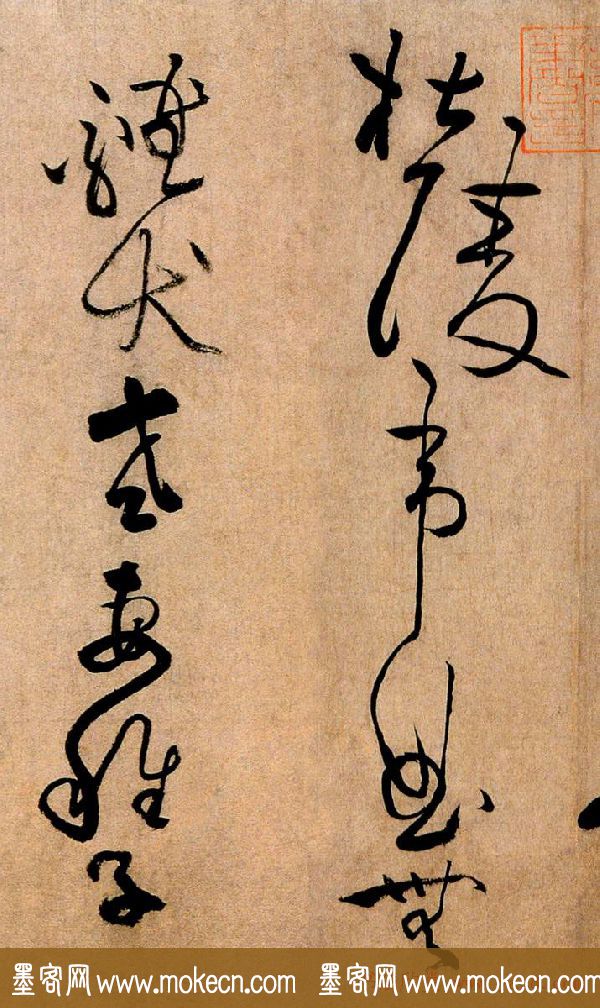 杜陵韋曲無
雞犬老妻稚子
墨客网 www.mokecn.com 墨客网 www.mokecn.com